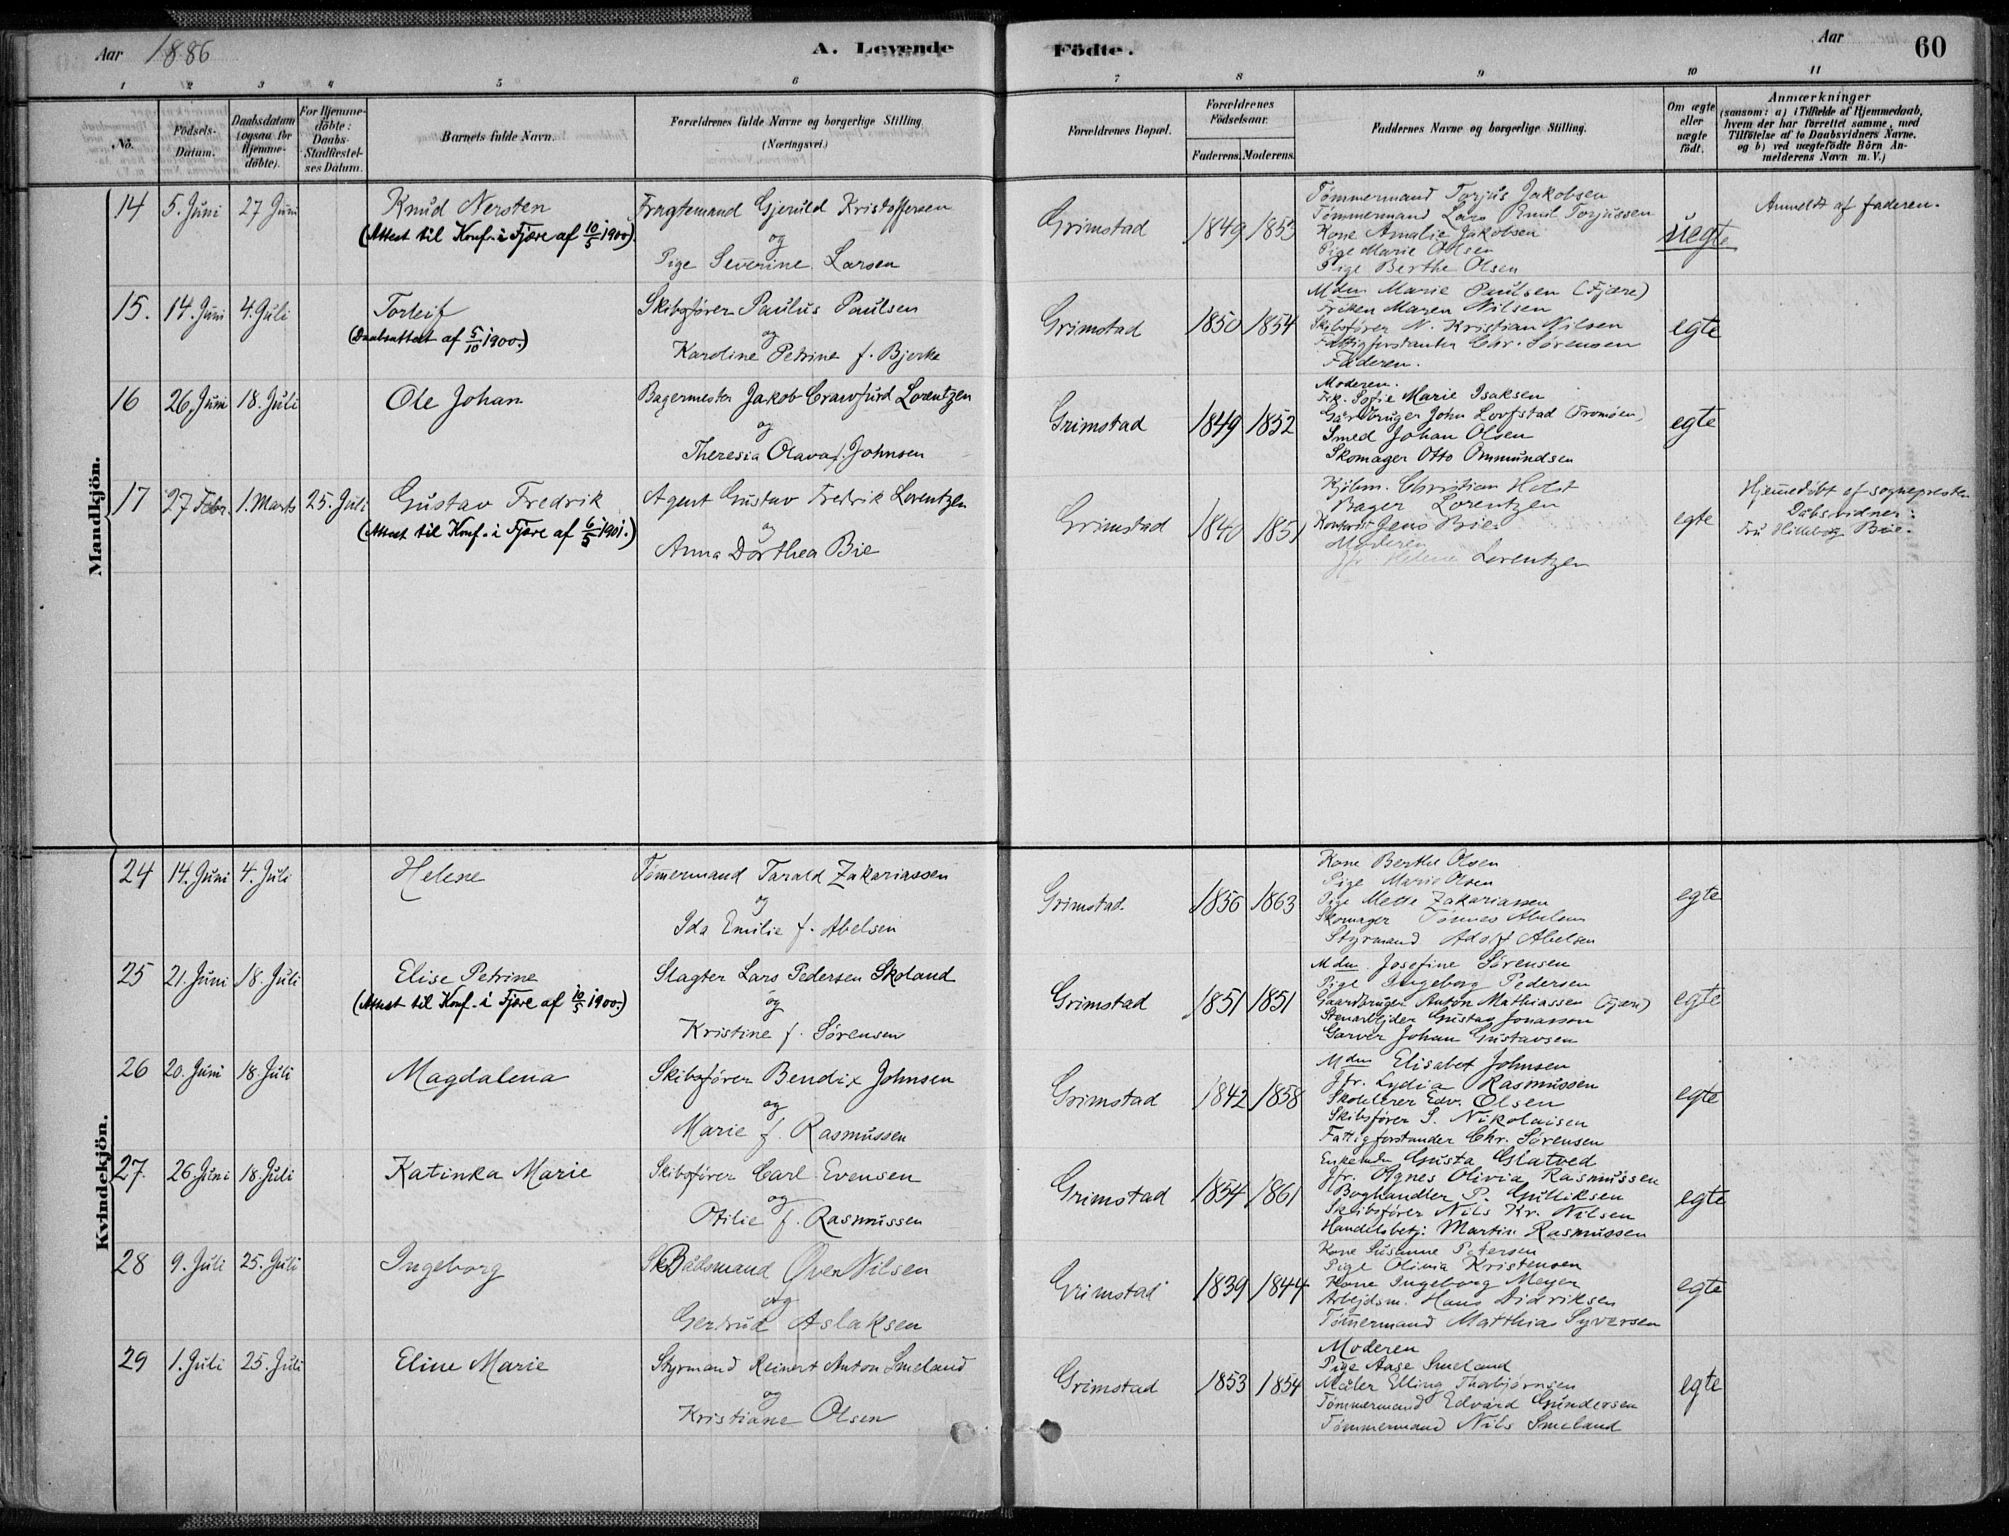 Aar 1886 A. Levende Födte. Aar 60
1 2 3 4 5 6 7 8 9 10 11
No.
Födsels-Datum.
Daabsdatum (ogsaa for Hjemme-döbte).
For Hjemme-döbte: Daabs-Stadfæstel-ses Datum.
Barnets fulde Navn.
Forældrenes fulde Navne og borgerlige Stilling.
(Næringsvei.)
Forældrenes Bopæl.
Forældrenes Födselsaar.
Faderens. Moderens.
Faddernes Navne og borgerlige Stilling.
Om ægte eller uægte födt.
Anmærkninger
(saasom: a) i Tilfælde af Hjemmedaab,
hvem der har forrettet samme, med
Tilföielse af to Daabsvidners Navne,
og b) ved uægtefödte Börn An-
melderens Navn m. V.)
Mandkjön.
14 5. Juni 27 Juni Knud Nersten
(Attest til Konf. i Fjære af 10/5 1900).
Fragtemand Gjeruld Kristoffersen
og
Pige Severine Larsen
Grimstad 1849 1853
Tømmermand Torjus Jakobsen
Tømmermand Lars Emil Torjussen
Kone Amalie Jakobsen
Pige Marie Olsen
Pige Berthe Olsen
uegte
Anmeldt af faderen.
15. 14. Juni 4. Juli Torleif
(Daabsattest af 5/10 1900.)
Skibsfører Paulus Paulsen
og
Karoline Petrine f. Bjerke
Grimstad 1850 1854
Mdm Marie Paulsen (Fjære)
Frøken Maren Nilsen
Skibsfører N. Kristian Nilsen
Fattigforstander Chr. Sørensen
Faderen.
egte
16 26. Juni 18. Juli Ole Johan
Bagermester Jakob Crawfurd Lorentzen
og
Theresia Olava f. Johnsen
Grimstad 1849 1852
Moderen.
Frk. Sofie Marie Isaksen
Gårdbruger John Lovfstad (Tromøen)
Smed Johan Olsen
Skomager Otto Ommundsen
egte
17 27 Febr. 1. Marts 25. Juli Gustav Fredrik
(Attest til Konf. i Fjære af 6/5 1901.)
Agent Gustav Fredrik Lorentzen
og
Anna Dorthea Bie
Grimstad 1840 1851
Kjøbm. Christian Holst
Bager Lorentzen
Jens Bie
Moderen
Jfr. Helene Lorentzen
egte
Hjemmedøbt af sognepresten
Dåbsvidner:
Fru Hilleborg Bie.
Kvindekjön.
24 14. Juni 4. Juli Helene
Tømermand Tarald Zakariassen
og
Ida Emilie f. Abelsen
Grimstad. 1856 1863
Kone Berthe Olsen
Pige Marie Olsen
Pige Mette Zakariassen
Skomager Tønnes Abelsen
Styrmand Adolf Abelsen
egte
25 21. Juni 18. Juli Elise Petrine
(Attest til Konf. i Fjære af 10/5 1900.)
Slagter Lars Pedersen Skoland
og
Kristine f. Sørensen
Grimstad 1851 1851
Mdm. Josefine Sørensen
Pige Ingeborg Pedersen
Gaardbruger Anton Mathiassen (Fjære)
Stenarbejder Gustav Jonassen
Garver Johan Gustavsen
egte
26 20. Juni 18. Juli Magdalena
Skibsfører Bendix Johnsen
og
Marie f. Rasmussen
Grimstad 1842 1858
Mdm Elisabet Johnsen
Jfr. Lydia Rasmussen
Skolelærer Edv. Olsen
Skibsfører S. Nikolaisen
Fattigforstander Chr. Sørensen
egte
27. 26. Juni 18. Juli Katinka Marie
Skibsfører Carl Evensen
og
Otilie f. Rasmussen
Grimstad 1854 1861
Enkemdm Gusta Glatved
Jfr. Agnes Olivia Rasmussen
Boghandler P. Gulliksen
Skibsfører Nils Kr. Nilsen
Handelsbetj. Martin Rasmussen
egte
28 9. Juli 25. Juli Ingeborg
Bådsmand Øven Nilsen
og
Gertrud Aslaksen
Grimstad 1839 1844
Kone Susanne Petersen
Pige Olivia Kristensen
Kone Ingeborg Meyer
Arbejdsm. Hans Didriksen
Tømmermand Matthias Syversen
egte
29 1. Juli 25. Juli Eline Marie
Styrmand Reinert Anton Smeland
og
Kristiane Olsen
Grimstad 1853 1854
Moderen
Pige Aase Smeland
Maler Elling Thorbjørnsen
Tømmermand Edvard Gundersen
Tømmermand Nils Smeland
egte